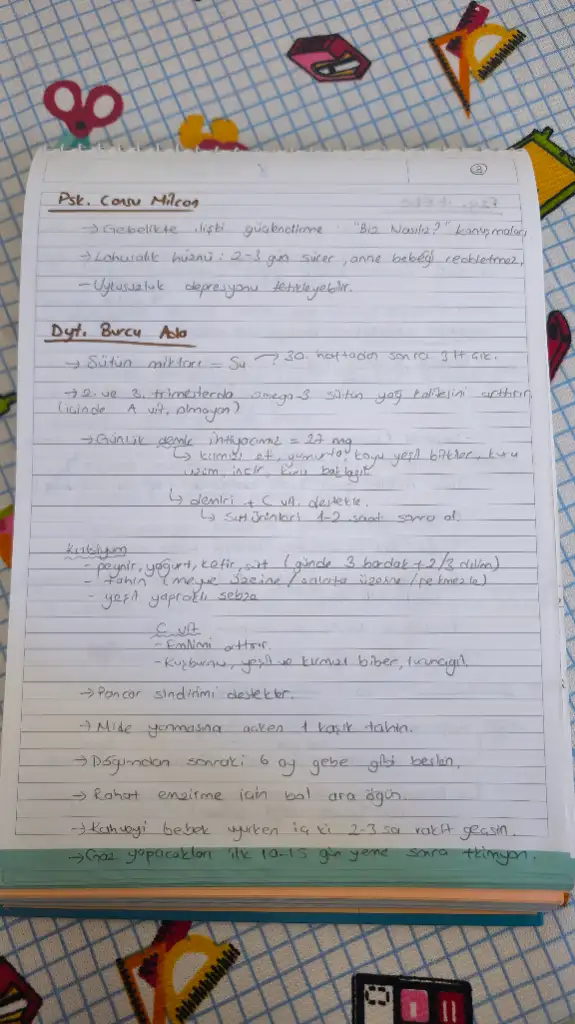 2
Psk. Cansu Milcan
→ Gebelikte ilişki güçlendirme "Biz Nasılız?" konuşmaları
→ Lohusalık hüznü: 2-3 gün sürer, anne bebeği reddetmez.
- Uykusuzluk depresyonu tetikleyebilir.
Dyt. Burcu
→ Sütün miktarı = Su → 30. haftadan sonra 3 lt çık.
→ 2. ve 3. trimesterda omega-3 sütün yağ kalitesini arttırır
(içinde A vit. olmayan)
→ Günlük demir ihtiyacımız = 27 mg
↳ kırmızı et, yumurta, koyu yeşil bitkiler, kuru
üzüm, incir, kuru baklagil
↳ demiri + C vit. destekle.
↳ süt ürünleri 1-2 saat sonra al.
Kalsiyum
- peynir, yoğurt, kefir, süt (günde 3 bardak + 2/3 dilim)
- tahin (meyve üzerine / salata üzerine / pekmezle)
- yeşil yapraklı sebze
C vit
- Emilimi arttırır.
- Kuşburnu, yeşil ve kırmızı biber, turunçgil.
→ Pancar sindirimi destekler.
→ Mide yanmasına açken 1 kaşık tahin.
→ Doğumdan sonraki 6 ay gebe gibi beslen.
→ Rahat emzirme için bol ara öğün.
→ Kahveyi bebek uyurken iç ki 2-3 sa vakit geçsin.
→ Gaz yapacakları ilk 10-15 gün yeme sonra + kimyon.